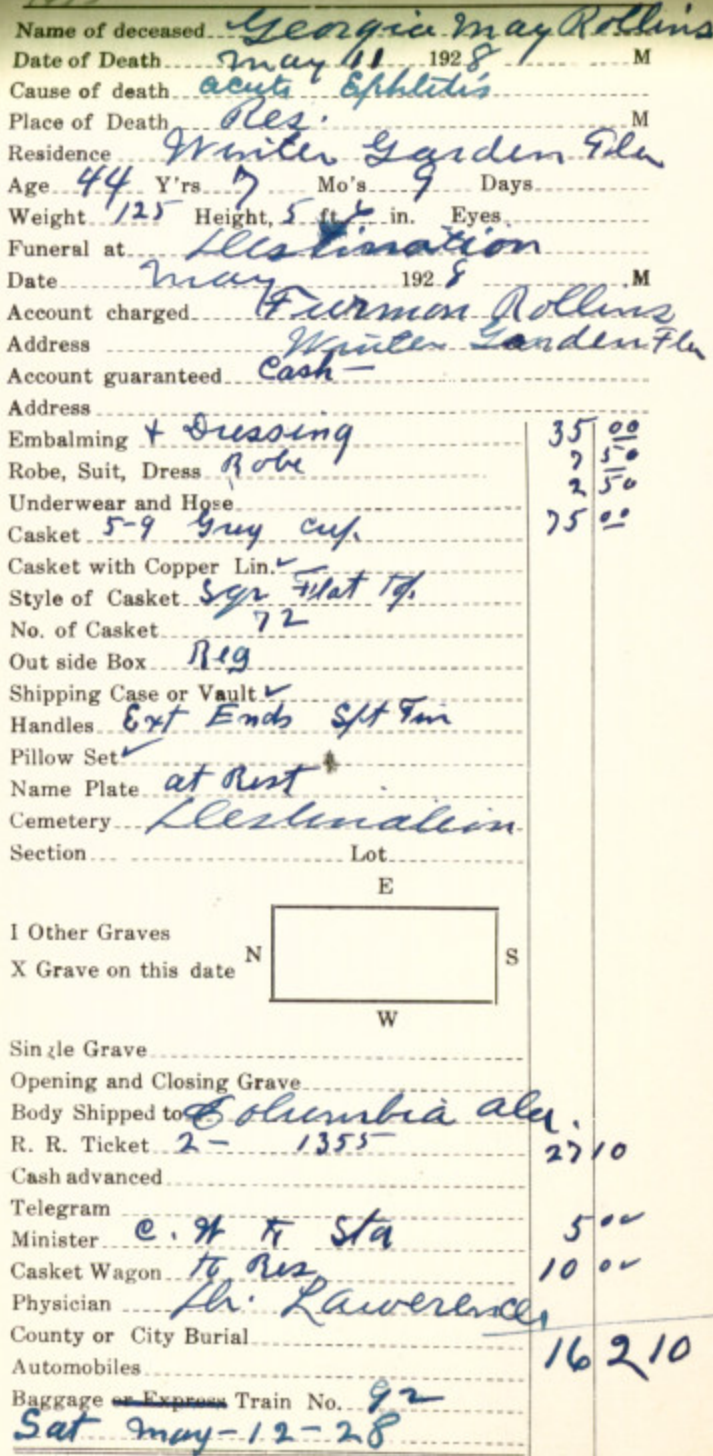 Name of deceased Georgia May Rollins
Date of Death May 11 1928 M
Cause of death acute Ephletis
Place of Death Res. M
Residence Winter Garden Fla
Age 44 Y'rs 7 Mo's 9 Days
Weight 125 Height, 5 ft in. Eyes
Funeral at Destination
Date May 1928 M
Account charged Furmon Rollins
Address Winter Garden Fla
Account guaranteed Cash -
Address
Embalming + Dressing 35 00
Robe, Suit, Dress Robe 7 50
Underwear and Hose 2 50
Casket 5-9 Grey 75 00
Casket with Copper Lin. ✓
Style of Casket Sqr Flat Tp.
No. of Casket 72
Out side Box Reg
Shipping Case or Vault ✓
Handles Ext Ends
Pillow Set ✓
Name Plate at Rest
Cemetery Destination
Section Lot
E
I Other Graves
N S
X Grave on this date
W
Single Grave
Opening and Closing Grave
Body Shipped to Columbia Ala.
R. R. Ticket 2 - 1355 27 10
Cash advanced
Telegram
Minister C. W to Sta 5 00
Casket Wagon to Res 10 00
Physician Dr. Lawerence
County or City Burial
162 10
Automobiles
Baggage or Express Train No. 92
Sat May-12-28